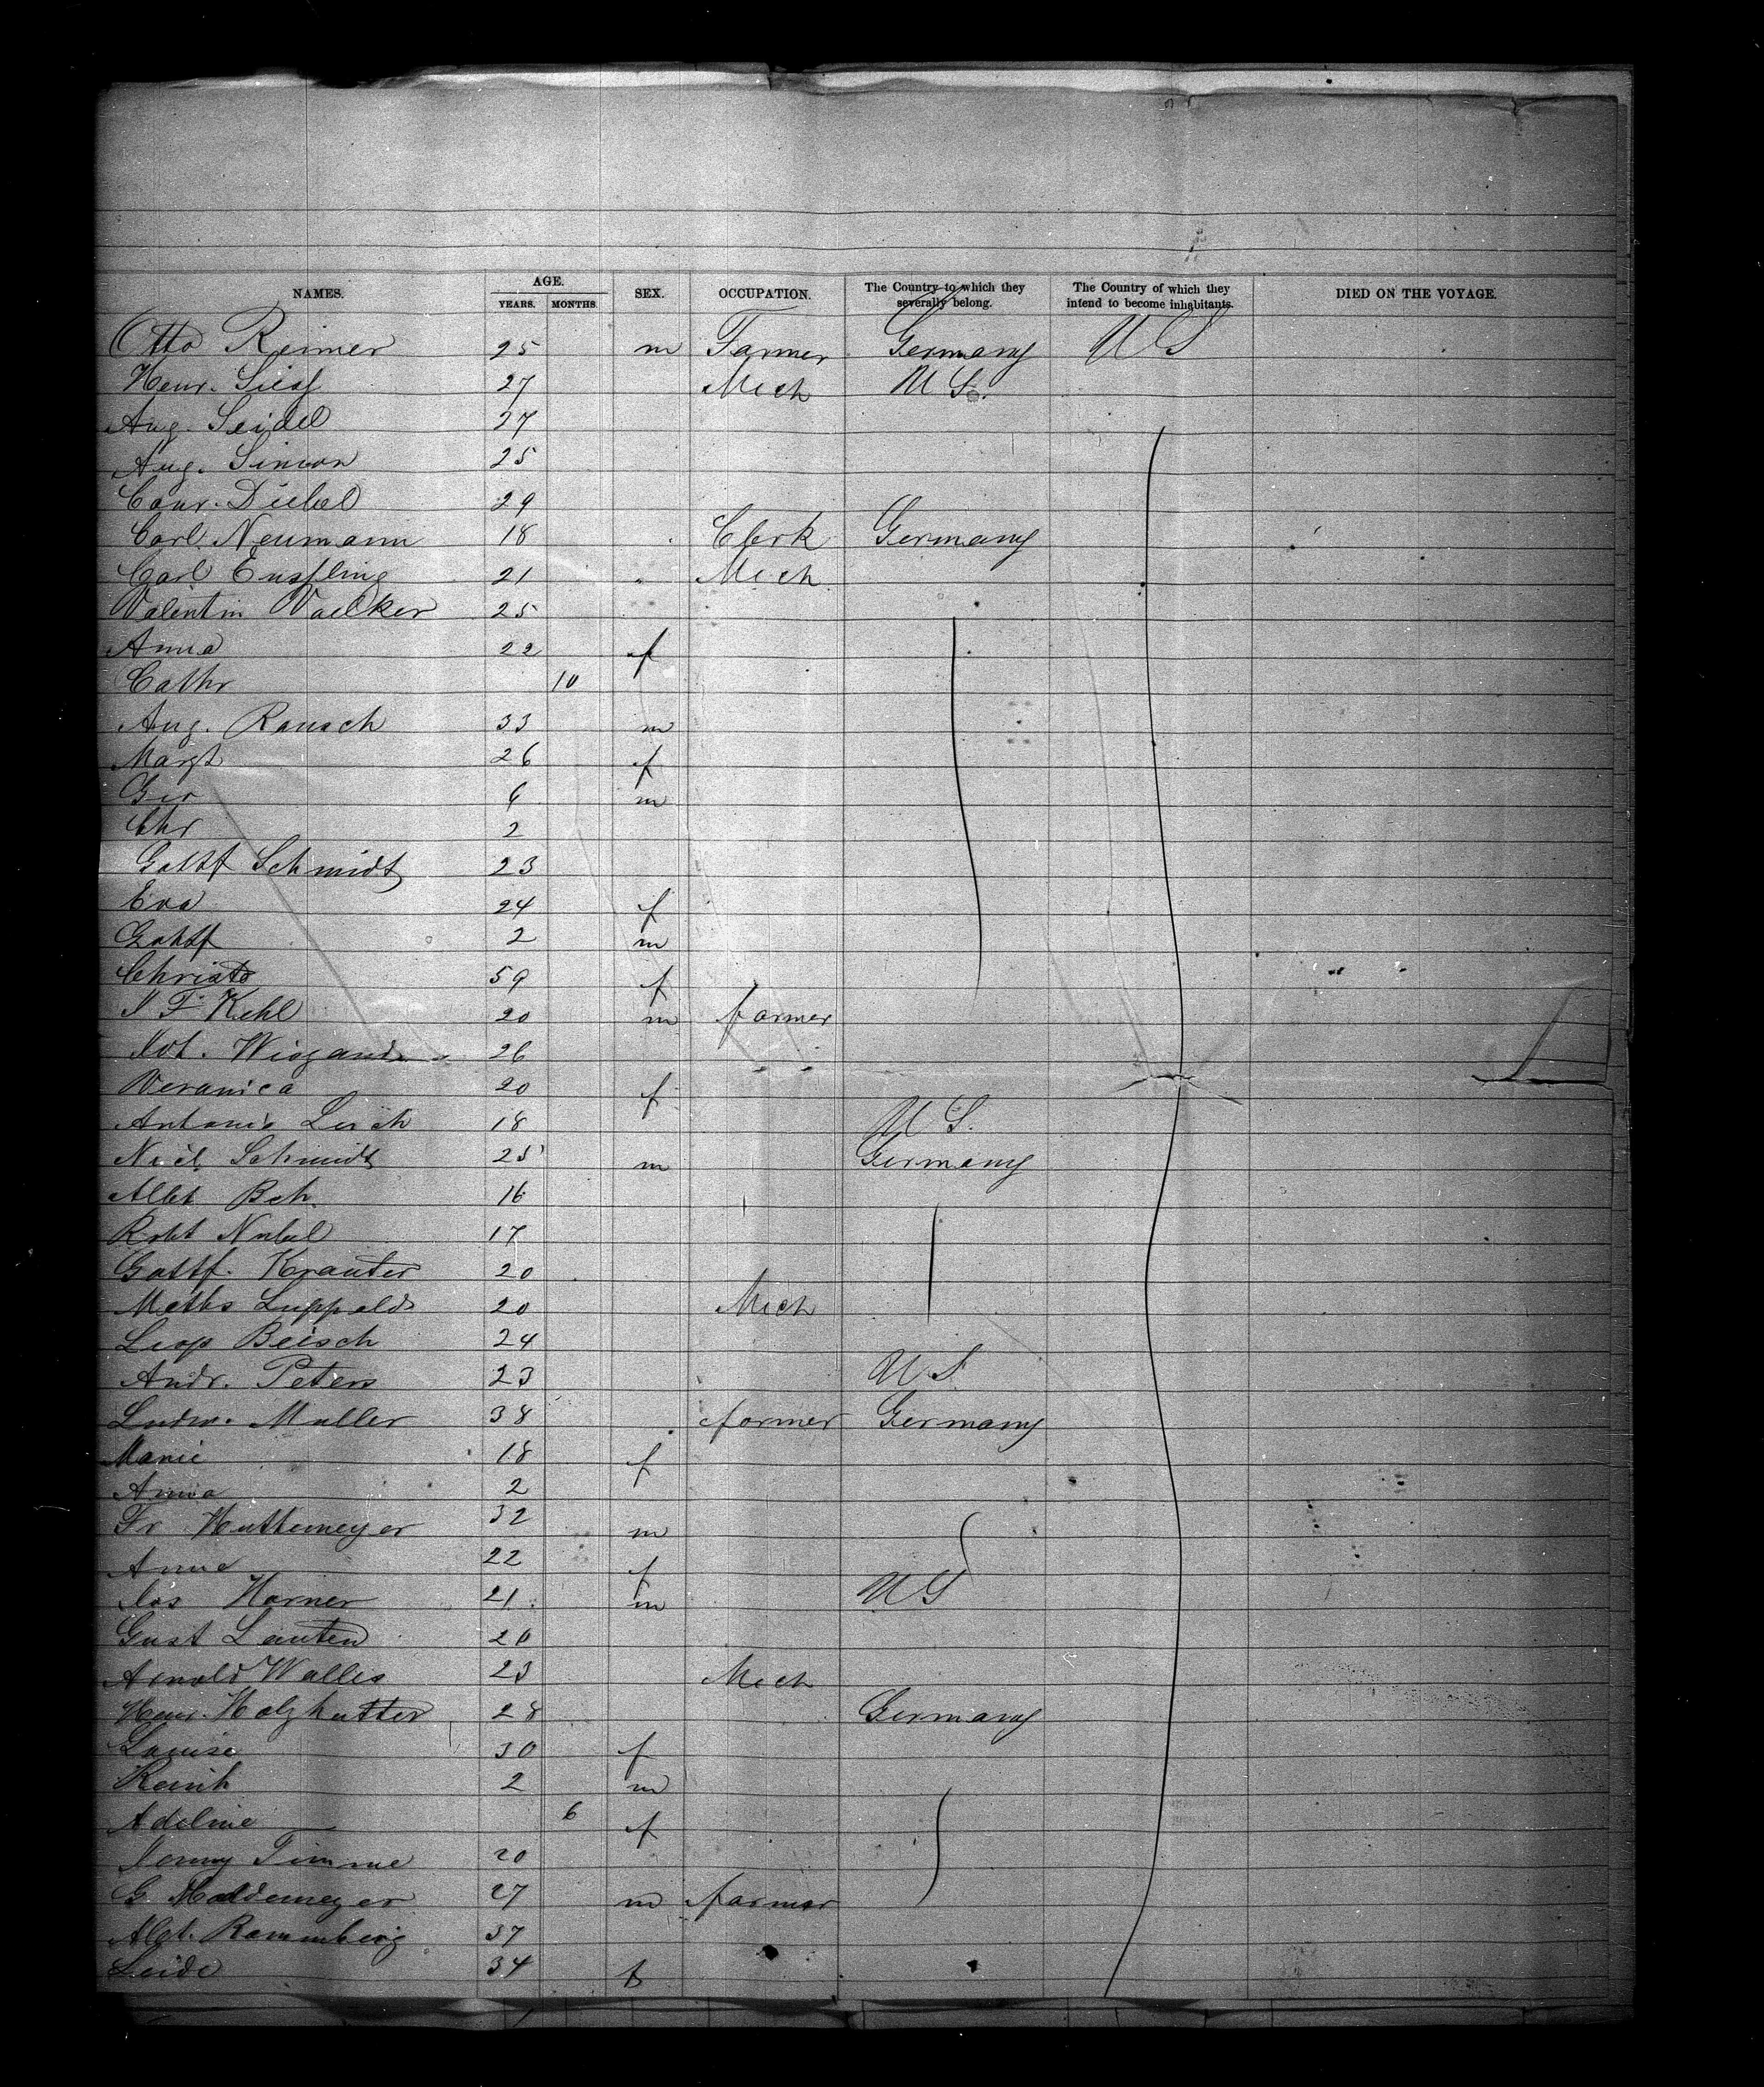 NAMES. AGE. YEARS. MONTHS. SEX. OCCUPATION. The Country to which they severally belong. The Country of which they intend to become inhabitants. DIED ON THE VOYAGE.
Otto Reimer 25 m Farmer Germany U S
Henr. 27 Mech U S.
Aug. Seidel 27
Aug. Simon 25
Conr. Diebel 29
Carl Neumann 18 Clerk Germany
Carl Enssling 21 Mech
Valentin Voelker 25
Anna 22 f
Cathr 10
Aug. Rausch 33 m
Margt 26 f
Geo 6 m
Chr 2
Gottf Schmidt 23
Eva 24 f
Gottf 2 m
Christe 59 f
J F Kehl 20 m farmer
Wiegand 26
Veronica 20 f
Antonia Lerch 18 U S.
Schmidt 25 m Germany
Albt Beh 16
Robt Nubel 17
Gottf. Krauter 20
Maths Luppold 20 Mech
Leop Beisch 24
Andr. Peters 23 U.S.
Ludw. Muller 38 farmer Germany
Marie 18 f
Anna 2
Fr Huttemeyer 32 m
Anna 22 f
Jos Horner 21 m U S
Gust Lauten 20
Arnold Walles 23 Mech
Henr. Holzhutter 28 Germany
Louise 30 f
Heinh 2 m
Adeline 6 f
Jenny Timme 20
G. Moldemeyer 27 m farmer
Albt. Rammberg 37
34 f